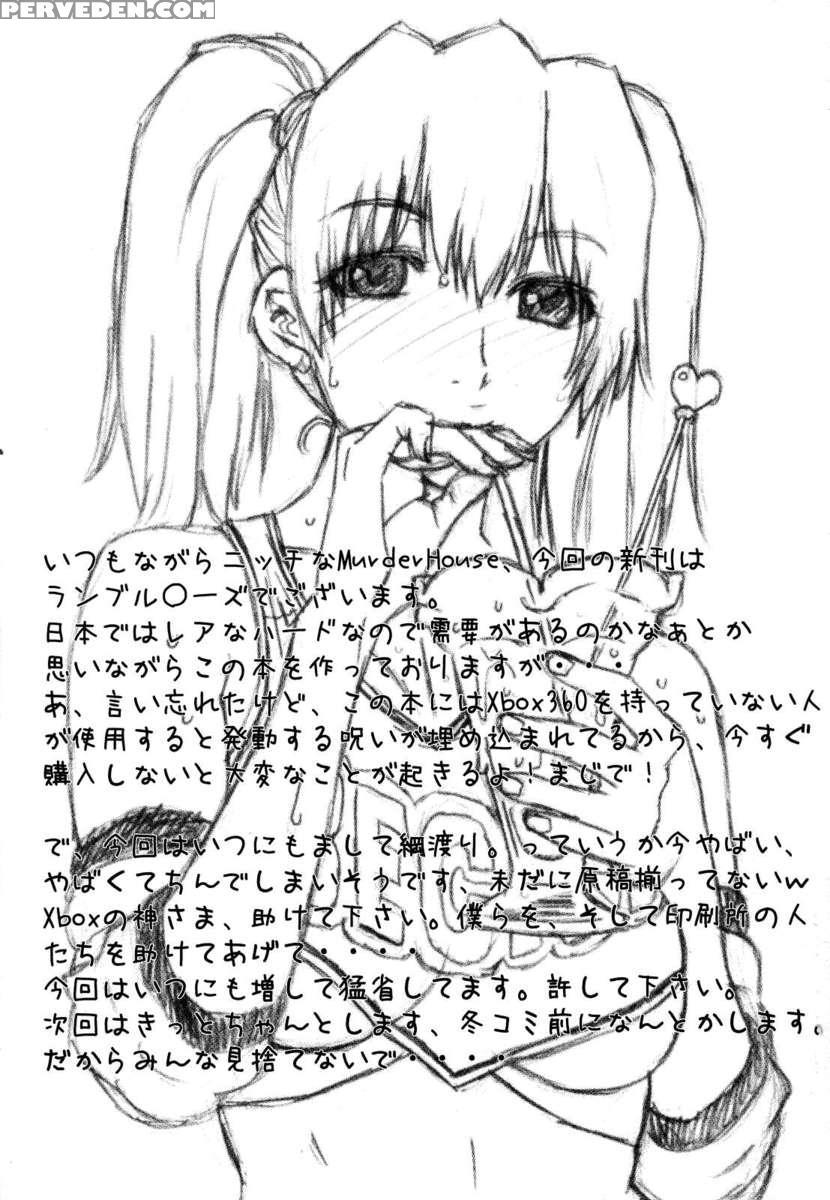 PERVEDEN.COM
いつもながらニッチなMurderHouse、今回の新刊は
ランブル〇ーズでございます。
日本ではレアなハードなので需要があるのかなぁとか
思いながらこの本を作っておりますが・・・
あ、言い忘れたけど、この本にはXbox360を持っていない人
が使用すると発動する呪いが埋め込まれてるから、今すぐ
購入しないと大変なことが起きるよ!まじで!
で、今回はいつにもまして綱渡り。っていうか今やばい、
やばくてちんでしまいそうです、未だに原稿揃ってないw
Xboxの神さま、助けて下さい。僕らを、そして印刷所の人
たちを助けてあげて・・・・
今回はいつにも増して猛省してます。許して下さい。
次回はきっとちゃんとします、冬コミ前になんとかします。
だからみんな見捨てないで・・・・